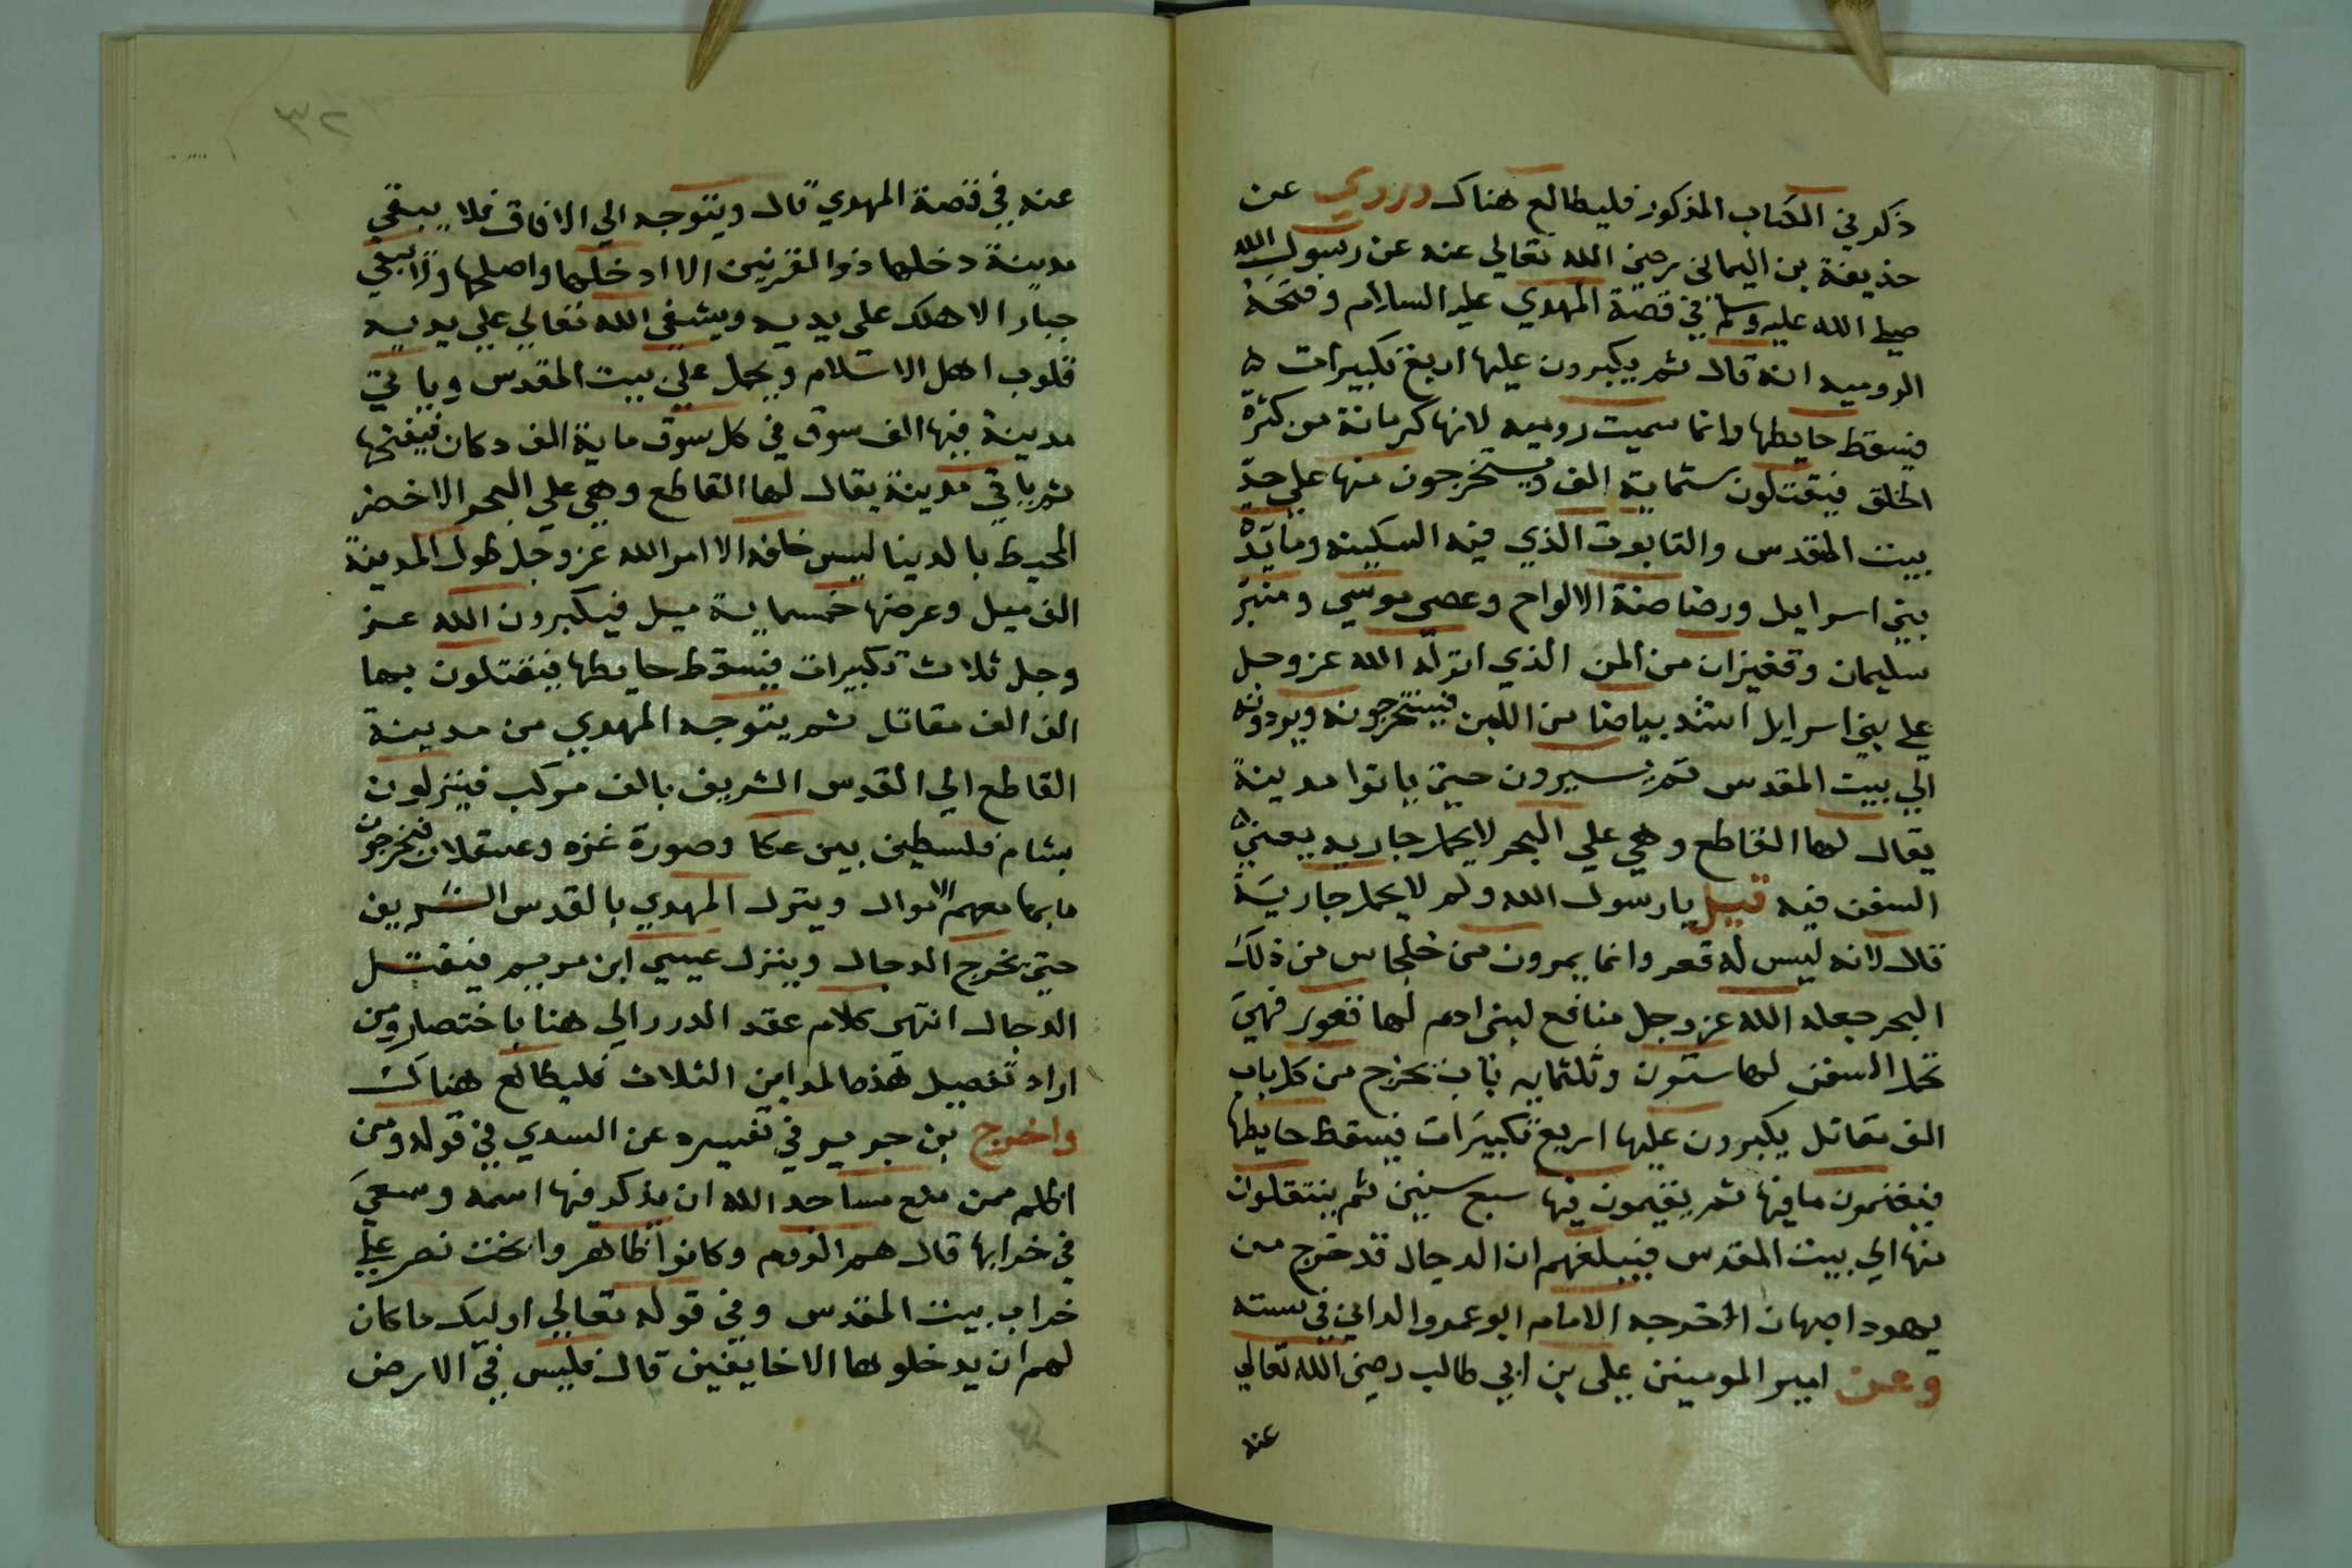 ذكر في الكتاب المذكور فليطالع هناك وروي عن
حذيفة بن اليماني رضي الله تعالي عنه عن رسول الله
صلي الله عليه وسلم في قصة المهدي عليه السلام وفتحه
الروميه انه قال ثم يكبرون عليها اربع تكبيرات
فيسقط حايطها وانما سميت روميه لانها كرمانة من كثرة
الخلق فيقتلون ستماية الف ويستخرجون منها علي حد
بيت المقدس والتابوت الذي فيه السكينه ومايدة
بني اسرايل ورضاضة الالواح وعصي موسي ومنبر
سليمان وقفيزان من المن الذي انزله الله عز وجل
علي بني اسرايل اشد بياضا من اللبن فيستخرجونه ويردونه
الي بيت المقدس ثم يسيرون حتي ياتوا مدينة
يقال لها القاطع وهي علي البحر لا يحمل جاريه يعني
السفن فيه قيل يا رسول الله ولم لا يحمل جارية
قال لانه ليس له قعر وانما يمرون من خلجان من ذلك
البحر جعله الله عز وجل منافع لبني ادم لها قعور فهي
تحمل السفن لها ستون وثلثمايه باب يخرج من كل باب
الف مقاتل يكبرون عليها اربع تكبيرات فيسقط حايطها
فيغنمون ما فيها ثم يقيمون فيها سبع سنين ثم ينتقلون
منها الي بيت المقدس فيبلغهم ان الدجال قد خرج من
يهود اصبهان اخرجه الامام ابو عمرو الداني في سننه
وعن امير المومنين علي بن ابي طالب رضي الله تعالي
عنه
٣٢
عنه في قصة المهدي قال ويتوجه الي الافاق فلا يبقي
مدينة دخلها ذو القرنين الا ادخلها واصلحها ولا يبقي
جبار الا هلك علي يديه ويشفي الله تعالي علي يديه
قلوب اهل الاسلام ويحمل علي بيت المقدس وياتي
مدينة فيها الف سوق في كل سوق ماية الف دكان فيفتحها
ثم ياتي مدينة يقال لها القاطع وهي علي البحر الاخضر
المحيط بالدنيا ليس خلفه الا امر الله عز وجل طول المدينة
الف ميل وعرضها خمسماية ميل فيكبرون الله عز
وجل ثلاث تكبيرات فيسقط حايطها فيقتلون بها
الف الف مقاتل ثم يتوجه المهدي من مدينة
القاطع الي القدس الشريف بالف مركب فينزلون
بشام فلسطين بين عكا وصورة غزه وعسقلان فيخرجون
ما بها معهم الاموال وينزل المهدي بالقدس الشريف
حتي يخرج الدجال وينزل عيسي ابن مريم فيقتل
الدجال انتهي كلام عقد الدرر الي هنا باختصار ومن
اراد تفصيل هذه المداين الثلاث فليطالع هناك
واخرج بن جرير في تفسيره عن السدي في قوله ومن
اظلم ممن منع مساجد الله ان يذكر فيها اسمه وسعي
في خرابها قال هم الروم وكانوا ظاهروا بخت نصر علي
خراب بيت المقدس وفي قوله تعالي اوليك ما كان
لهم ان يدخلوها الا خايفين قال فليس في الارض